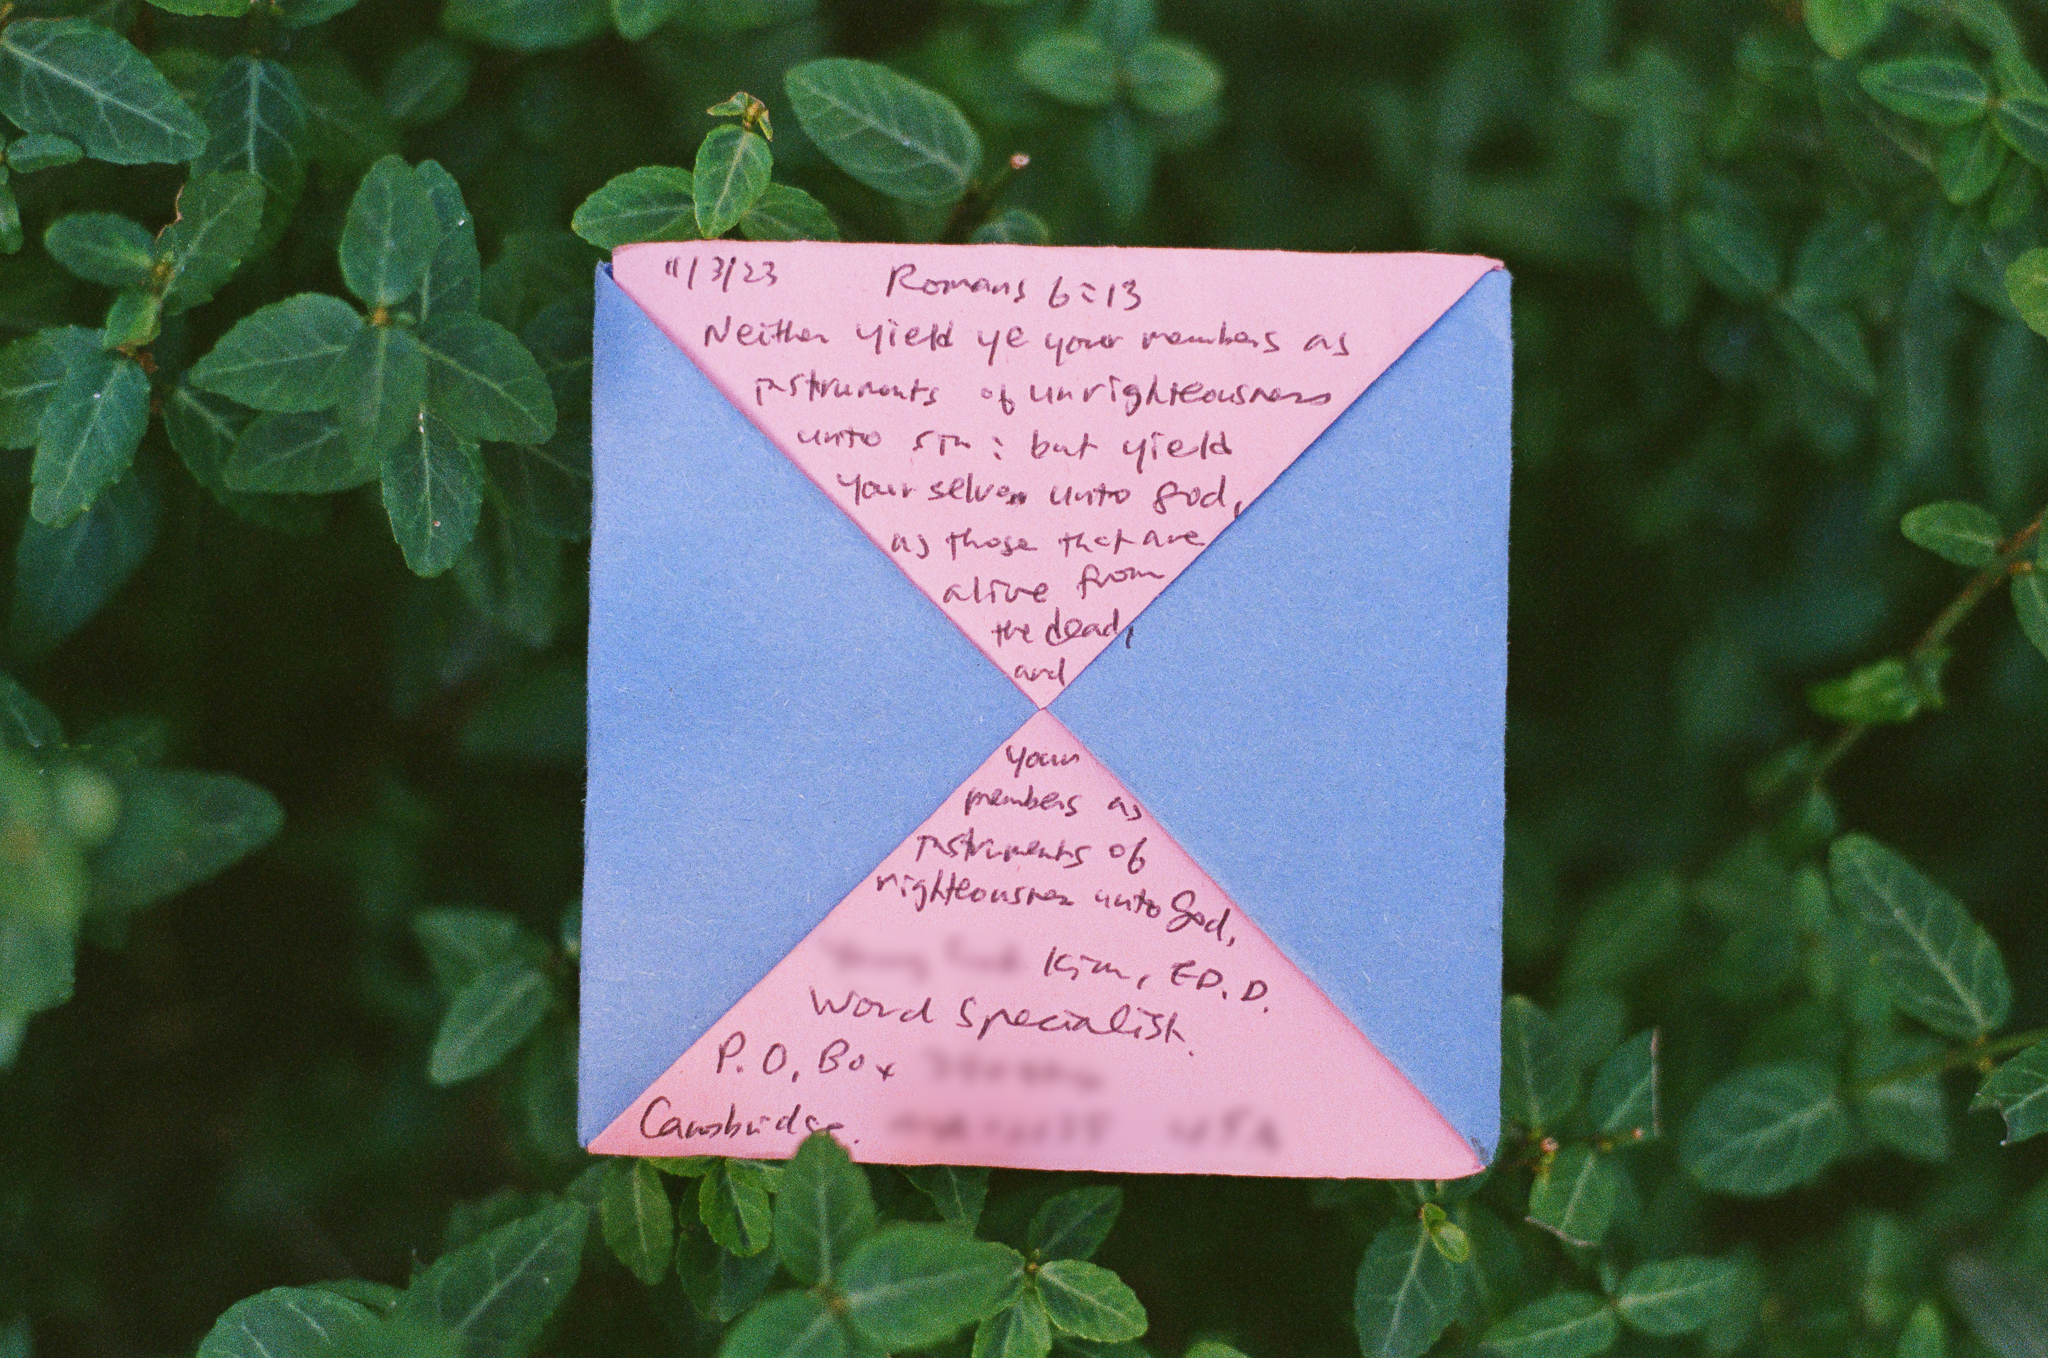 11/3/23 Romans 6:13
Neither yield ye your members as
instruments of unrighteousness
unto sin: but yield
yourselves unto God,
as those that are
alive from
the dead,
and
your
members as
instruments of
righteousness unto God,
Kim, ED.D.
Word Specialist.
P.O. Box
Cambridge.